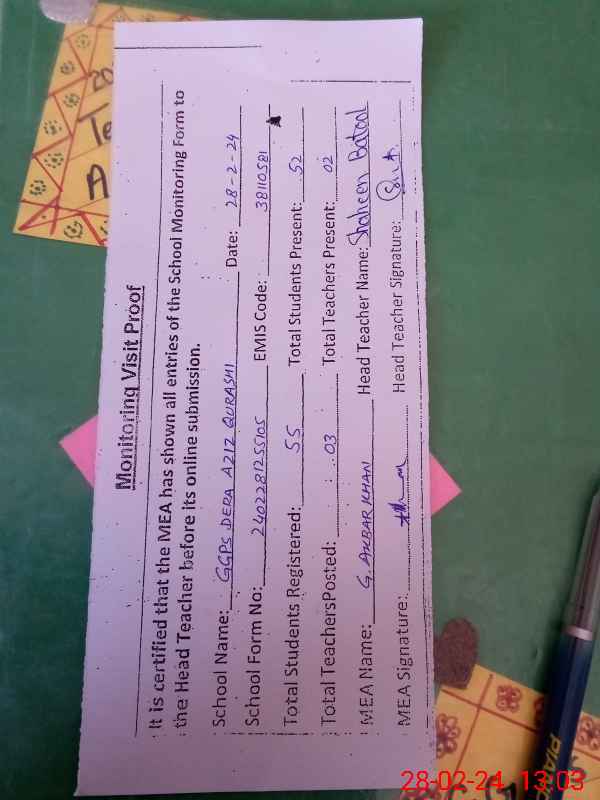 Monitoring Visit Proof
It is certified that the MEA has shown all entries of the School Monitoring Form to
the Head Teacher before its online submission.
School Name: GGPS DERA AZIZ QURASHI Date: 28-2-24
School Form No: 2402281255105 EMIS Code: 38110581
Total Students Registered: 55 Total Students Present: 52
Total TeachersPosted: 03 Total Teachers Present: 02
MEA Name: G. AKBAR KHAN Head Teacher Name: Shaheen Batool
MEA Signature: Head Teacher Signature:
20
Te
A
28-02-24 13:03